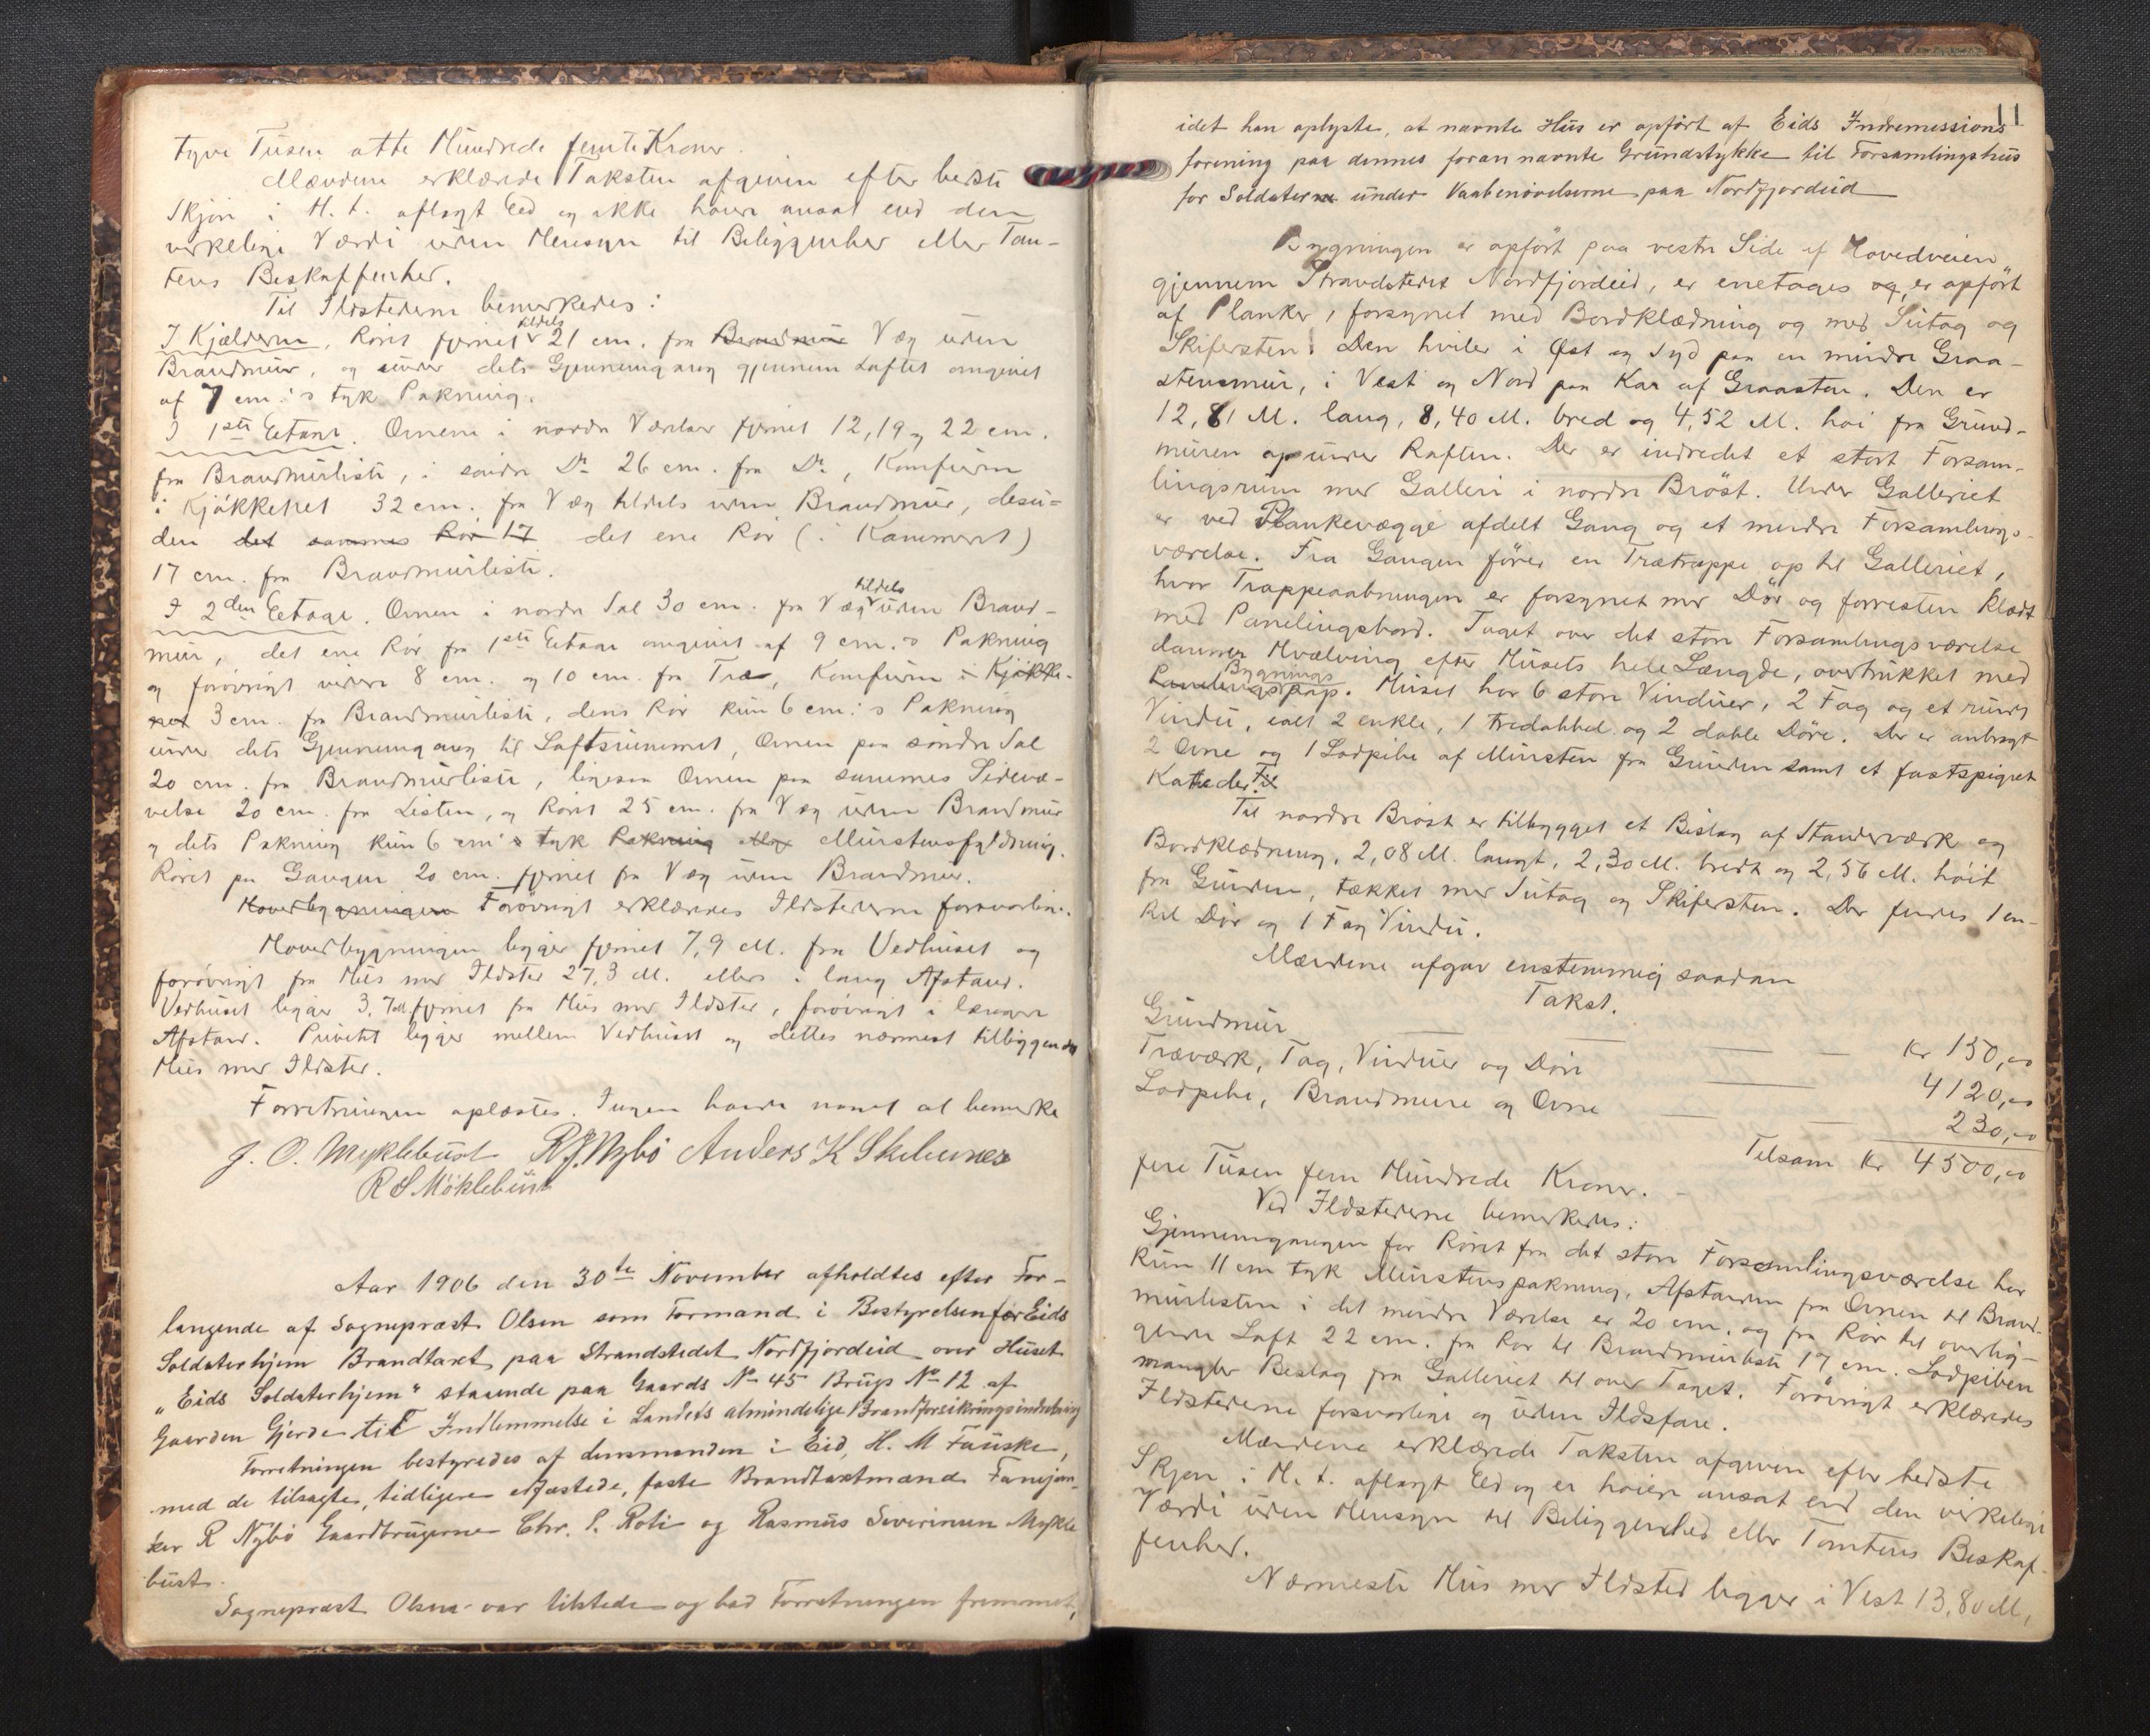 tyve Tusen otte Hundrede femti Kroner.
Mændene erklærede Taksten afgiven efter bedste
Skjøn i H. t. aflagt Ed og ikke høiere ansat end den
virkelige Værdi uden Hensyn til Beliggenhed eller Tom-
tens Beskaffenhed.
Til Ildstederne bemerkedes:
I Kjælderen. Røret fjernet tildels 21 cm. fra Brandmur Væg uden
Brandmur, og under dets Gjennemgang gjennem Loftet omgivet
af 7 cm.'s tyk Pakning.
I 1ste Etage. Ovnen i nordre Værelse fjernet 12, 19 og 22 cm.
fra Brandmurliste, i søndre Do 26 cm. fra Do, Komfuren
i Kjøkkenet 32 cm. fra Væg tildels uden Brandmur, desu-
den det sammes Rør 17 det ene Rør (i Kammeret)
17 cm. fra Brandmurliste.
I 2den Etage. Ovnen i nordre Sal 30 cm. fra Væg tildels uden Brand-
mur, det ene Rør fra 1ste Etage omgivet af 9 cm.'s Pakning
og forøvrigt videre 8 cm. og 10 cm. fra Træ, Komfuren i Kjøkke-
net 3 cm. fra Brandmurliste, dens Rør kun 6 cm.'s Pakning
under dets Gjennemgang til Loftsrummet, Ovnen paa søndre Sal
20 cm. fra Brandmurliste, ligesaa Ovnen paa sammes Sidevæ-
relse 20 cm. fra Listen, og Røret 25 cm. fra Væg uden Brandmur
og dets Pakning kun 6 cm's tyk Pakning Murstensfyldning.
Røret paa Gangen 20 cm. fjernet fra Væg uden Brandmur.
Hovedbygningen Forøvrigt erklæredes Ildstederne forsvarlige.
Hovedbygningen ligger fjernet 7,9 M. fra Vedhuset og
forøvrigt fra Hus med Ildsted 27,3 M. ellers i lang Afstand.
Vedhuset ligger 3,7 M. fjernet fra Hus med Ildsted, forøvrigt i længere
Afstand. Privetet ligger mellem Vedhuset og dettes nærmest tilliggende
Hus med Ildsted.
Forretningen oplæstes. Ingen havde noget at bemerke
J. O. Myklebust R J Nybö Anders K Skilunes
R S Möklebust
Aar 1906 den 30te November afholdtes efter For-
langende af Sognepræst Olsen som Formand i Bestyrelsen for Eids
Soldaterhjem Brandtaxt paa Strandstedet Nordfjordeid over Huset
"Eids Soldaterhjem" staaende paa Gaards No 45 Brugs No 12 af
Gaarden Gjerde til Indlemmelse i Landets almindelige Brandforsikringsindretning
Forretningen bestyredes af Lensmanden i Eid, H. M Fauske,
med de tilsagte, tidligere edfæstede, faste Brandtaxtmænd Fanejun-
ker R Nybö Gaardbrugerne Chr. P. Roti og Rasmus Severinsen Mykle
bust.
Sognepræst Olsen var tilstede og bad Forretningen fremmet,
11
idet han oplyste, at nævnte Hus er opført af Eids Indremissions
forening paa dennes foran nævnte Grundstykke til Forsamlingshus
for Soldaterne under Vaabenøvelserne paa Nordfjordeid
Bygningen er opført paa vestre Side af Hovedveien
gjennem Strandstedet Nordfjordeid, er enetages og er opført
af Planker, forsynet med Bordklædning og med Sutag og
Skifersten. Den hviler i Øst og Syd paa en mindre Graa-
stensmur, i Vest og Nord paa Kar af Graasten. Den er
12,81 M. lang, 8,40 M. bred og 4,52 M. høi fra Grund-
muren op under Raften. Der er indredet et stort Forsam-
lingsrum med Galleri i nordre Brøst. Under Galleriet
er ved Plankevægge afdelt Gang og et mindre Forsamlings-
værelse. Fra Gangen fører en Trætrappe op til Galleriet,
hvor Trappeaabningen er forsynet med Dør og forresten klædt
med Panelingsbord. Taget over det store Forsamlingsværelse
danner Hvælving efter Husets hele Længde, overtrukket med
Panelingspap Bygnings. Huset har 6 store Vinduer, 2 Fag og et rundt
Vindu, ialt 2 enkle, 1 tredobbel og 2 doble Døre. Der er anbragt
2 Ovne og 1 Lodpibe af Mursten fra Grunden samt et fastspigret
Katheder. Til
Til nordre Brøst er tilbygget et Bislag af Standerværk og
Bordklædning, 2,08 M. langt, 2,30 M. bredt og 2,56 M. høit
fra Grunden, tækket med Sutag og Skifersten. Der findes 1 en-
kel Dør og 1 Fag Vindu.
Mændene afgav enstemmig saadan
Takst.
Grundmur Kr 150,00
Træværk, Tag, Vinduer og Døre 4120,00
Lodpibe, Brandmure og Ovne 230,00
Tilsam Kr 4500,00
fire Tusen fem Hundrede Kroner.
Ved Ildstederne bemerkedes:
Gjennemgangen for Røret fra det store Forsamlingsværelse har
kun 11 cm tyk Murstenspakning. Afstanden fra Ovnen til Brand-
murlisten i det mindre Værelse er 20 cm. og fra Rør til overlig-
gende Loft 22 cm. fra Rør til Brandmurliste 17 cm. Lodpiben
mangler Beslag fra Galleriet til over Taget. Forøvrigt erklæredes
Ildstederne forsvarlige og uden Ildsfare.
Mændene erklærede Taksten afgiven efter bedste
Skjøn i H. t. aflagt Ed og ei høiere ansat end den virkelige
Værdi uden Hensyn til Beliggenhed eller Tomtens Beskaf-
fenhed.
Nærmeste Hus med Ildsted ligger i Vest 13,80 M,